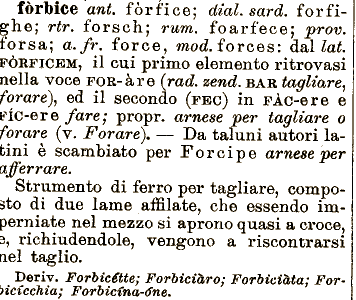 fòrbice ant. fòrfice; dial. sard. forfi-
ghe; rtr. forsch; rum. foarfece; prov.
forsa; a. fr. force, mod. forces: dal lat.
FÒRFICEM, il cui primo elemento ritrovasi
nella voce FOR-àre (rad. zend. BAR tagliare,
forare), ed il secondo (FEC) in FÀC-ere e
FÍC-ere fare; propr. arnese per tagliare o
forare (v. Forare). — Da taluni autori la-
tini è scambiato per Forcipe arnese per
afferrare.
Strumento di ferro per tagliare, compo-
sto di due lame affilate, che essendo im-
perniate nel mezzo si aprono quasi a croce,
e, richiudendole, vengono a riscontrarsi
nel taglio.
Deriv. Forbicétte; Forbiciàro; Forbiciàta; For-
bicícchia; Forbicína-óne.